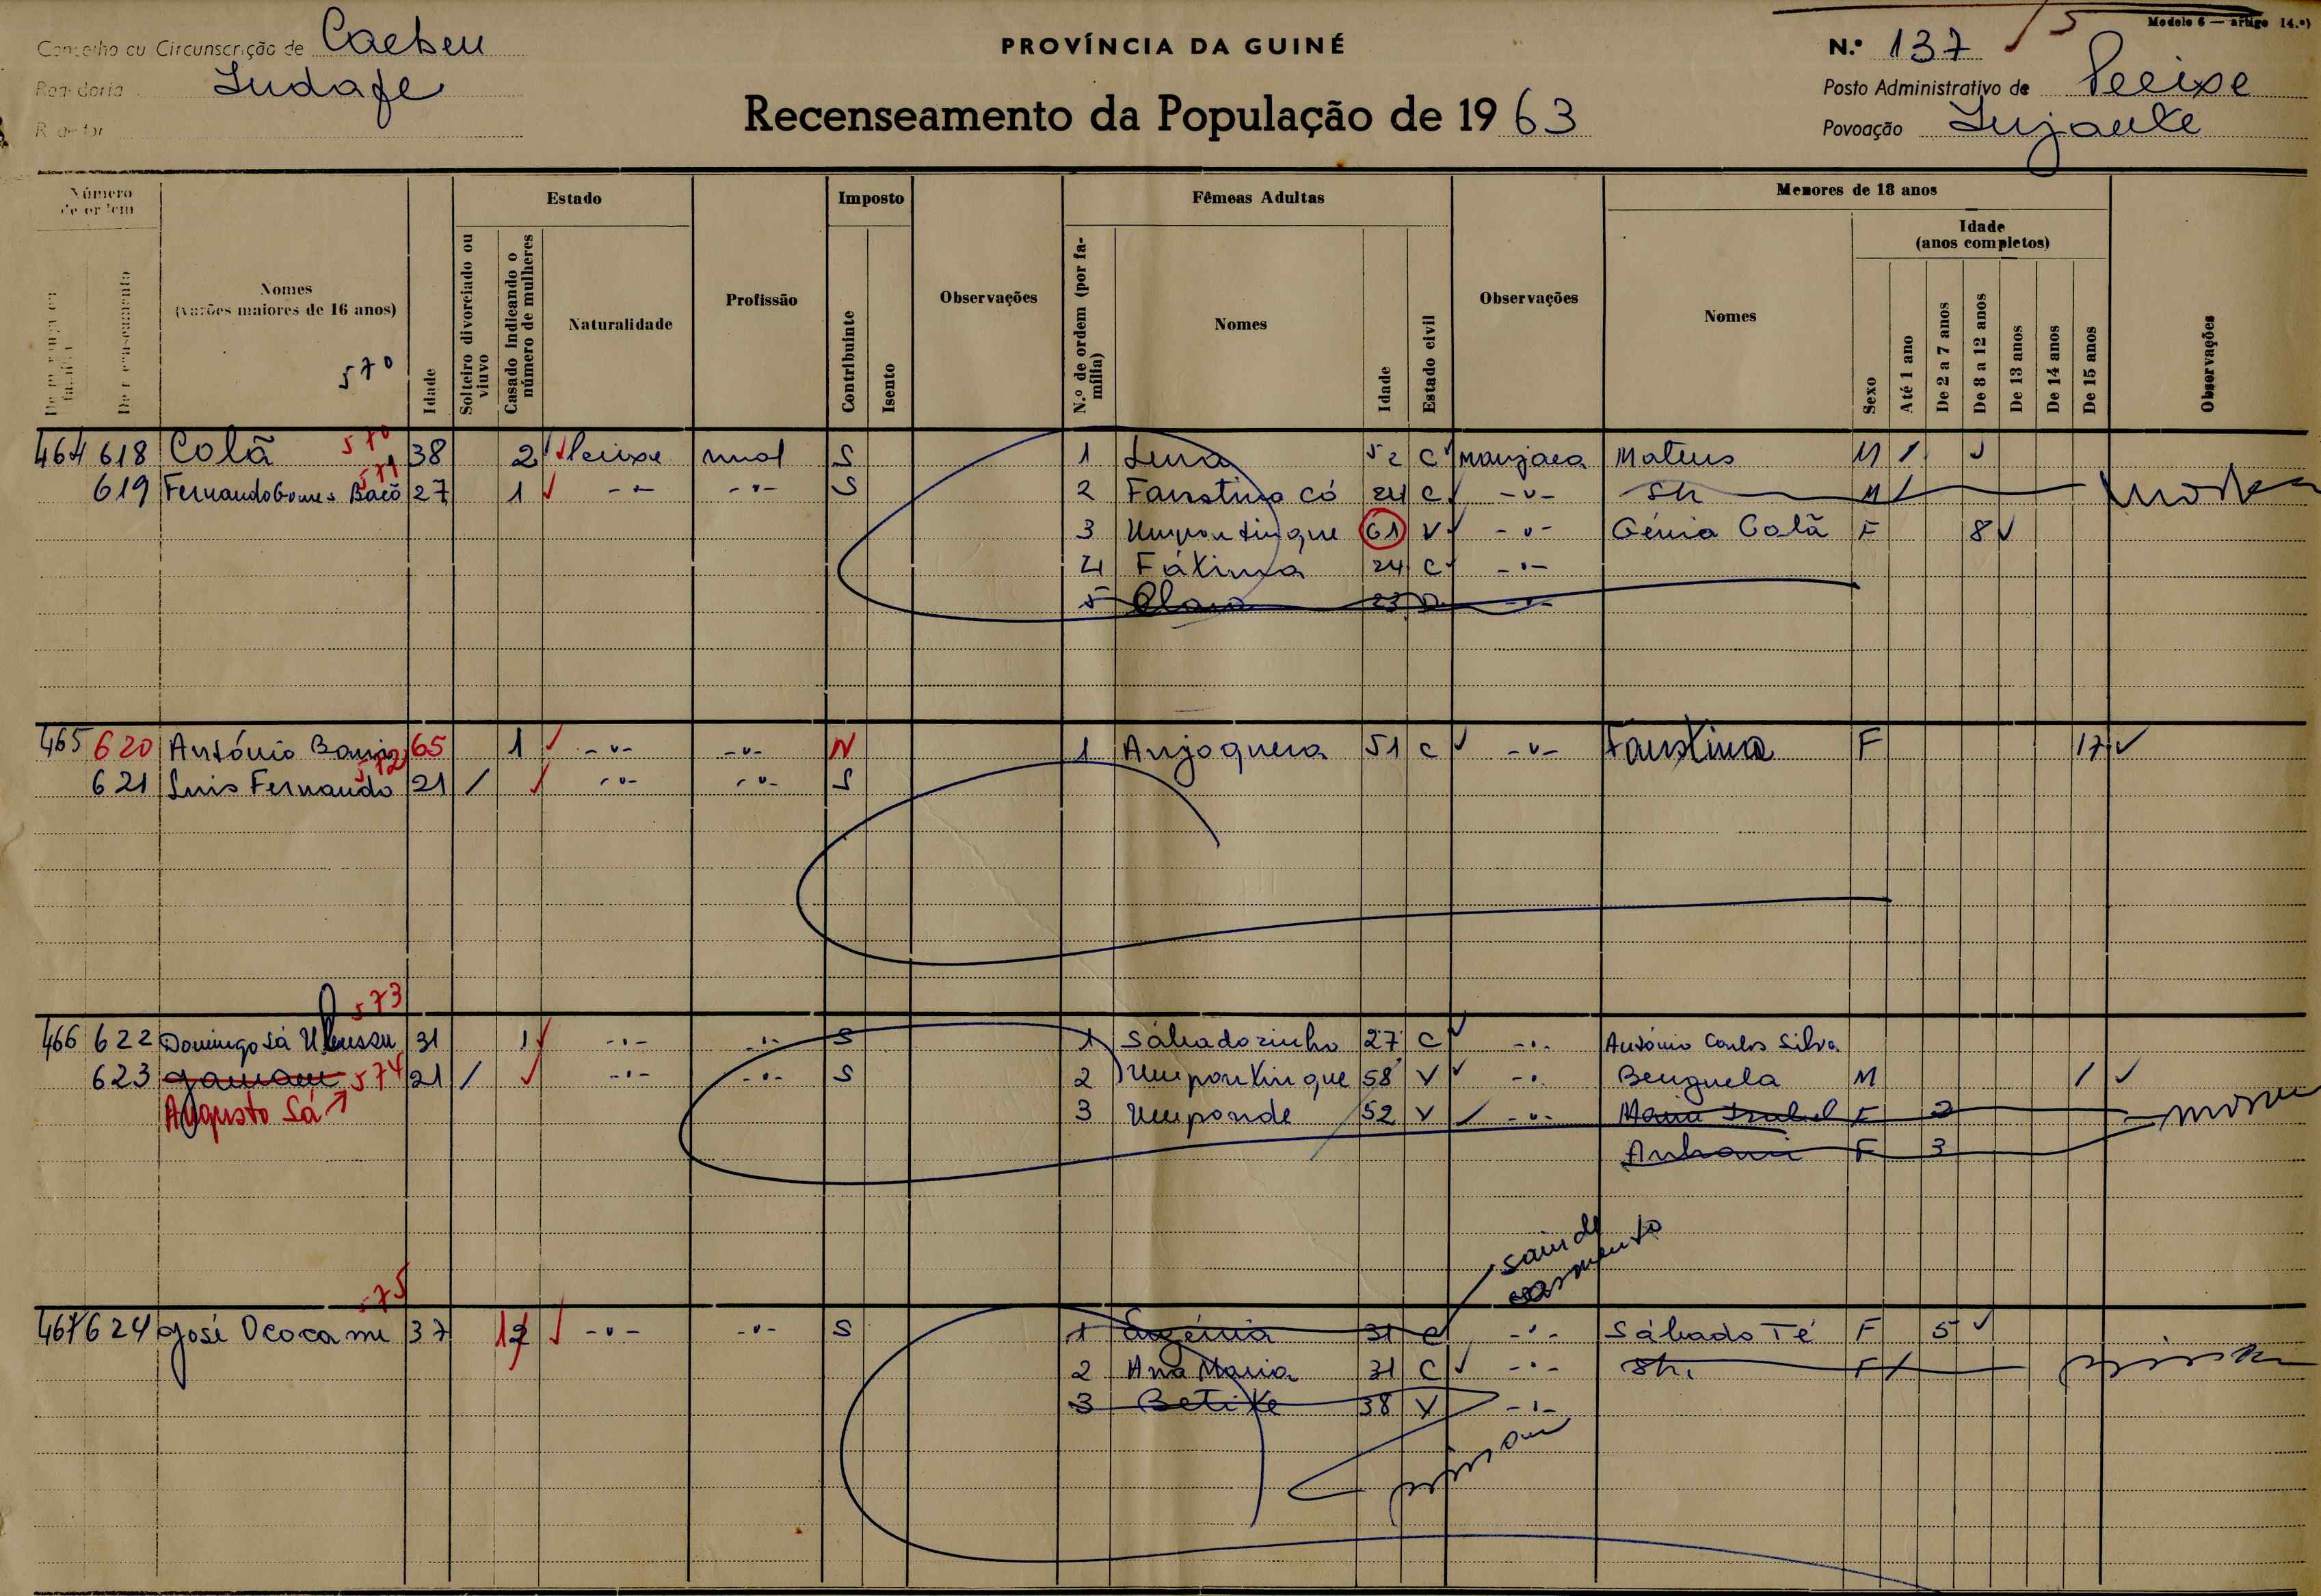 Modelo 6 — artigo 14.º)
Concelho ou Circunscrição de Caebeu
PROVÍNCIA DA GUINÉ
N.º 137
Regedoria
Posto Administrativo de Peeixe
Recenseamento da População de 1963
Povoação
Número de ordem
Estado
Imposto
Fêmeas Adultas
Menores de 18 anos
Idade
(anos completos)
Nomes
(varões maiores de 16 anos)
570
Idade
Solteiro divorciado ou viuvo
Casado indicando o número de mulheres
Naturalidade
Profissão
Contribuinte
Isento
Observações
N.º de ordem (por família)
Nomes
Idade
Estado civil
Observações
Nomes
Sexo
Até 1 ano
De 2 a 7 anos
De 8 a 12 anos
De 13 anos
De 14 anos
De 15 anos
Observações
464 618 Colã 570 38 2 S 1 52 C manjaca Mateus M
619 Fernando Gomes Bacõ 571 27 1 -"- -"- S 2 Faustina Có 24 C -"- M
3 Umpontinque 61 V -"- Génia Colã F 8
4 Fátima 24 C -"-
5 Clara 23 -"-
465 620 António 65 1 -"- -"- N 1 Anjoquera 51 C -"- Faustina F 17
572
621 Luis Fernando 21 / -"- -"- S
573
466 622 Domingo Sá 31 1 -"- -"- S 1 Sábadozinho 27 C -"- António Carlos Silva
623 574 21 / -"- -"- S 2 Umpontinque 58 V -"- Benguela M
Augusto Sá 3 Umponde 52 V -"- Maria Isabel F 2
F 3
casamento
575
467 624 José Ococami 37 12 -"- -"- S 1 Eugénia 31 C -"- Sábado Té F 5
2 Ana Maria 31 C -"- F
3 Betike 38 V -"-